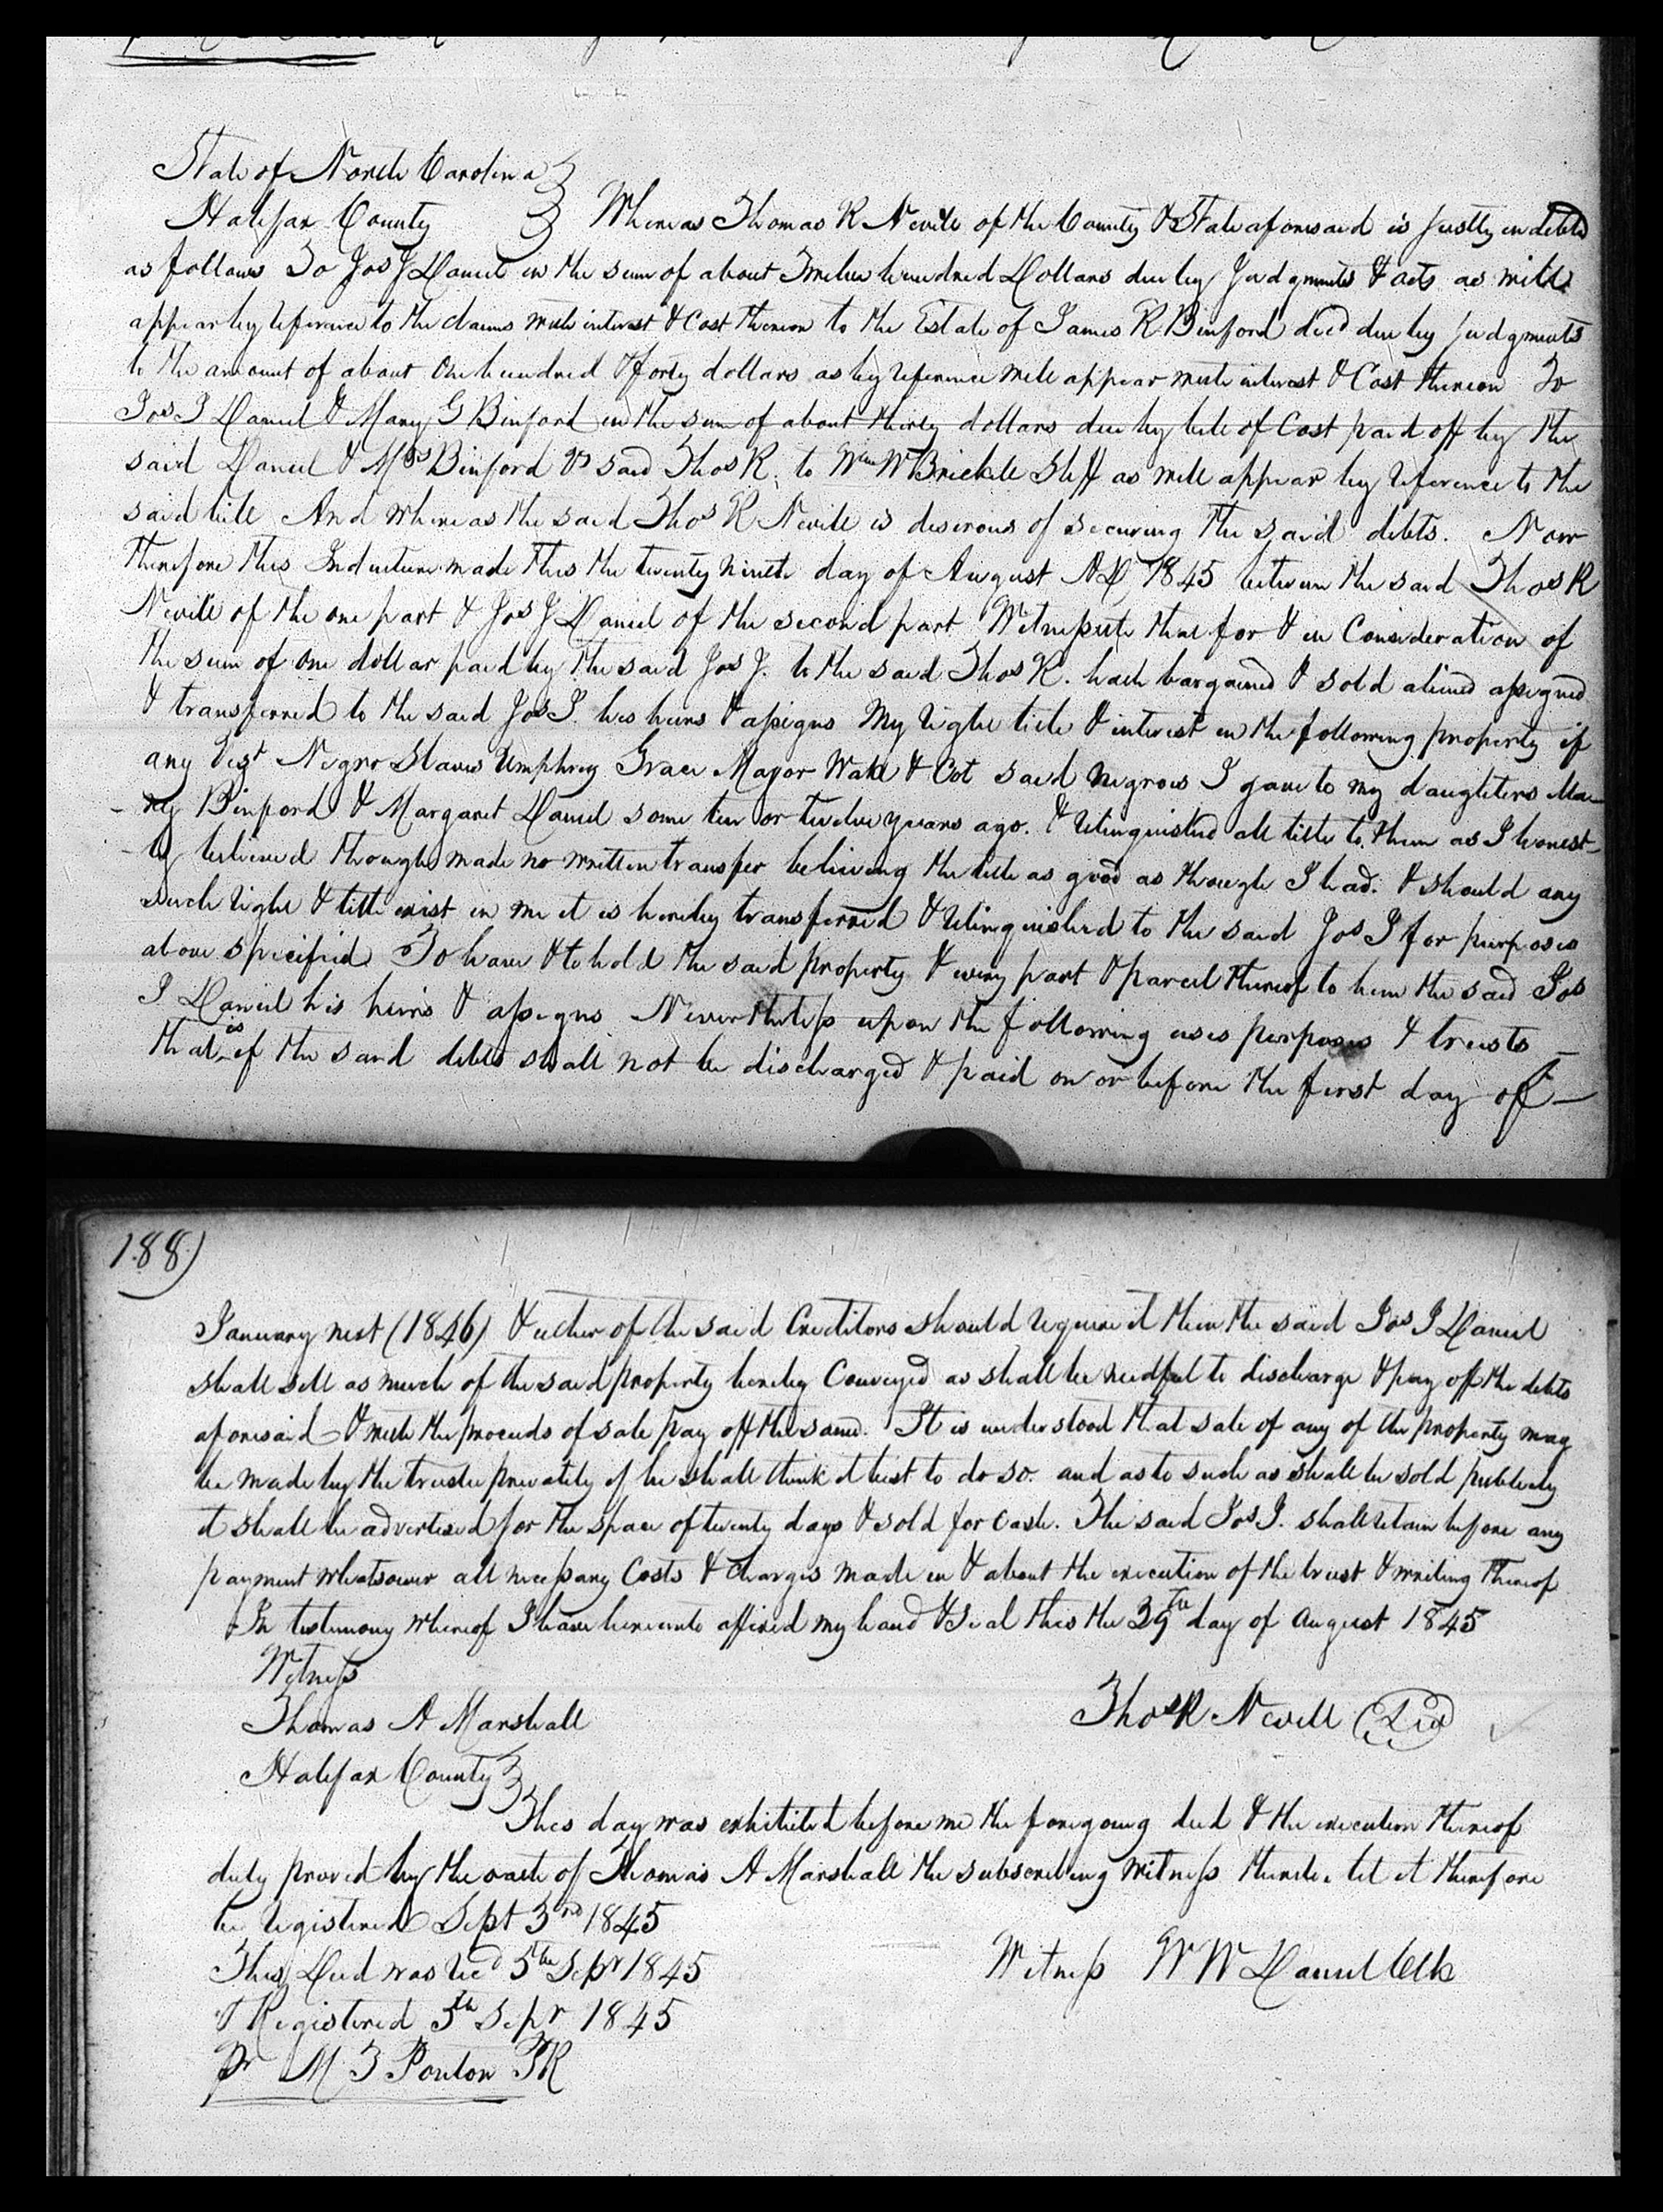 State of North Carolina
Halifax County Whereas Thomas R Nevill of the County & State aforesaid is justly indebted
as follows To Jos J Daniel in the sum of about Twelve hundred Dollars due by Judgments & acts as will
appear by reference to the claims with interest & Cost thereon to the Estate of James R Binford decd due by judgments
to the amount of about One hundred & forty dollars as by reference will appear with interest & Cost thereon To
Jos J Daniel & Mary G Binford in the sum of about thirty dollars due by bill of Cost paid off by the
said Daniel & Mrs Binford vs said Thos R. to Wm W Brickell Shff as will appear by reference to the
said bill And whereas the said Thos R Nevill is desirous of securing the said debts. Now
therefore this Indenture made this the twenty ninth day of August AD 1845 between the said Thos R
Nevill of the one part & Jos J Daniel of the second part Witnesseth that for & in Consideration of
the sum of one dollar paid by the said Jos J. to the said Thos R. hath bargained & sold aliened assigned
& transferred to the said Jos J. his heirs & assigns My right title & interest in the following property if
any Vizt Negro Slaves Umphrey Grace Mayor & Cot said negroes I gave to my daughters Ma-
-ry Binford & Margaret Daniel some ten or twelve years ago. & relinquished all title to them as I honest-
-ly believed though made no written transfer believing the title as good as though I had. & should any
such right & title exist in me it is hereby transferred & relinquished to the said Jos J for purposes
above specified To have & to hold the said property & every part & parcel thereof to him the said Jos
J Daniel his heirs & assigns Nevertheless upon the following uses purposes & trusts -
that is if the said debts shall not be discharged & paid on or before the first day of -
188)
January next (1846) & either of the said Creditors should require it then the said Jos J Daniel
shall sell as much of the said property hereby Conveyed as shall be needful to discharge & pay off the debts
aforesaid & with the proceeds of sale pay off the same. It is understood that sale of any of the property may
be made by the trustee privately if he shall think it best to do so. and as to such as shall be sold publicly
it shall be advertised for the space of twenty days & sold for cash. The said Jos J. shall retain before any
payment whatsoever all necessary Costs & charges made in & about the execution of the trust & writing thereof
In testimony whereof I have hereunto affixed my hand & Seal this the 29th day of August 1845
Witness
Thomas A Marshall Thos R Nevill
Halifax County
This day was exhibited before me the foregoing deed & the execution thereof
duly proved by the oath of Thomas A Marshall the subscribing witness thereto let it therefore
be registered Sept 3rd 1845
This Deed was recd 5th Sepr 1845 Witness W W Daniel Clk
& Registered 5th Sepr 1845
Pr M T Ponton PR